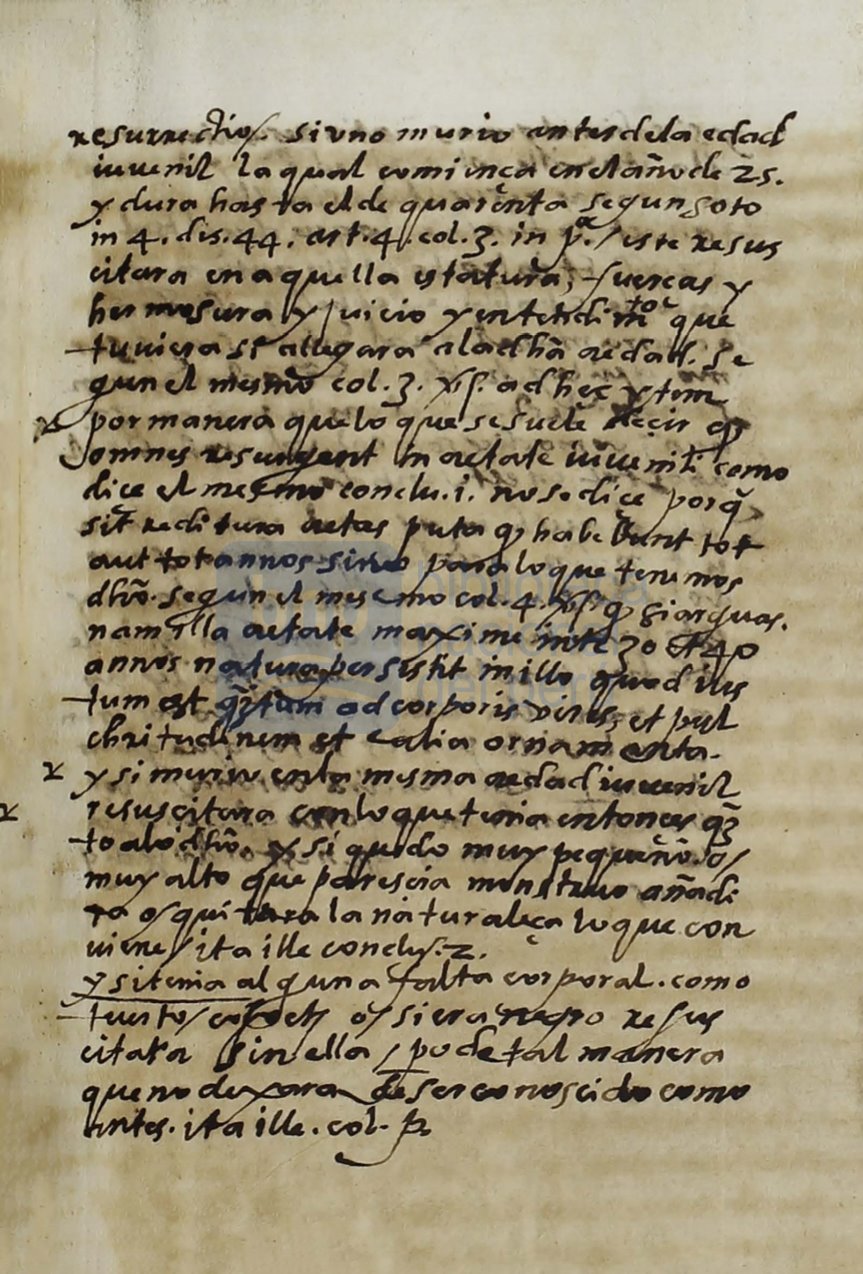 resurrectio/. si uno murio antes de la edad
iuvenil la qual comiença en el año de 25.
y dura hasta el de quarenta segun soto
in 4. dis. 44. art. 4. col. 3. in pª. / este resus
citara en aquella estatura, fuercas y
hermosura y juicio y entendimto que
tuviera si allegara a la dha aedad. se
gun el mesmo col. 3. ad hec ytem
por manera que lo que se suele decir q
omnes resurgent in aetate iuvenili como
dice el mesmo conclu. i. no se dice porq̃
sit reditura aetas puta q habebunt tot
aut tot annos sino para lo que tenemos
dho. segun el mesmo col. 4.
nam illa aetate maxime inter 30 et 40
annos natura persistit in illo quod ius
tum est ad corporis vires, et pul
chritudinem et alia ornamenta.
y si murio en la mesma aedad iuvenil
resuscitara con lo que tenia entonces
to a lo dho. y si quedo muy pequeño. o/
muy alto que parescia monstruo añadi
ra o/ quitara la naturaleça lo que con
viene / ita ille conclu. 2.
y si tenia alguna falta corporal. como
tuerto / o/ si era negro resus
citara sin ella / po de tal manera
que no dexara de ser conoscido como
antes. ita ille. col. p.